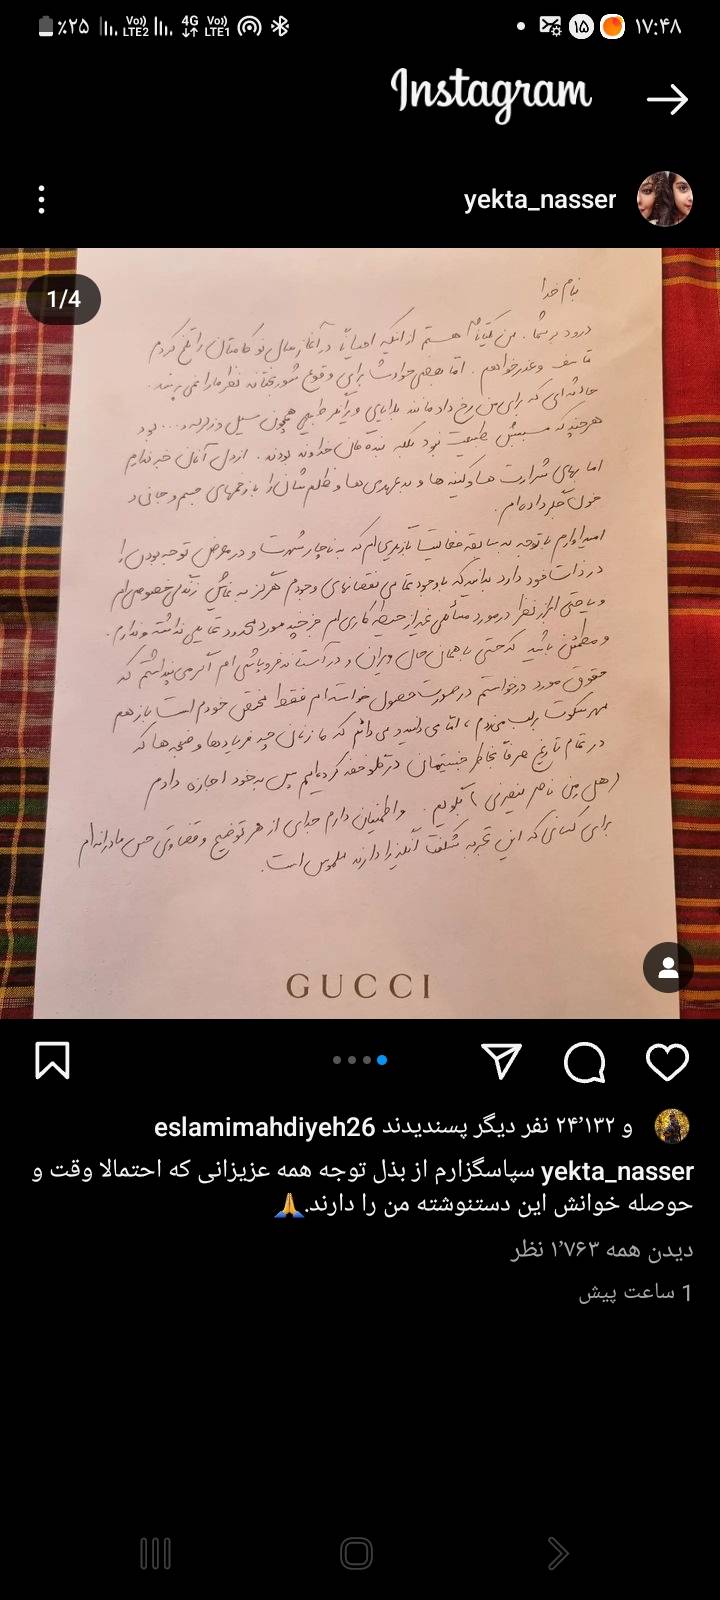 ٪۲۵ Vo)) LTE2 4G Vo)) LTE1 ۱۵ ۱۷:۴۸
Instagram
yekta_nasser
1/4
بنام خدا
درود بر شما. من یکتا هستم از اینکه احیاناً در آغاز سال نو کامتان را تلخ کردم
متاسف و عذرخواهم. اما بعضی حوادث برای وقوع شوربختانه نظر ما را نمی‌پرسند.
حادثه‌ای که برای من رخ داد مانند بلایای ویرانگر طبیعی همچون سیل و زلزله و... بود
هرچند که مسببش طبیعت نبود بلکه بندگان خداوند بودند. از دل آنان خبر ندارم
اما بهای شرارت‌ها و کینه‌ها و بدعهدی‌ها و ظلم‌شان را با زخمهای جسم و جانی
خون‌جگر داده‌ام.
امیدوارم با توجه به سابقه فعالیت بازیگری‌ام که به ناچار شهرت و در معرض توجه بودن را
در ذات خود دارد بدانید که با وجود تمامی نقصانهای وجودم هرگز به نمایش زندگی خصوصی‌ام
و یا حتی ابراز نظر در مورد مسائلی غیر از حیطه کاری‌ام جز چند مورد محدود تمایلی نداشته و ندارم.
و مطمئن باشید که حتی با همان حال ویران و در آستانه فروپاشی‌ام اگر می‌پنداشتم که
حقوق مورد درخواستم در صورت حصول خواسته‌ام فقط مختص خودم است باز هم
مهر سکوت بر لب می‌زدم، اما می‌دانید و می‌دانم که ما زنان چه فریادها و ضجه‌ها که
در تمام تاریخ صرفاً بخاطر جنسیتمان در گلو خفه کرده‌ایم پس به خود اجازه دادم
(هل من ناصر ینصرنی) بگویم. و اطمینان دارم جدای از هر توضیح و قضاوتی حس مادرانه‌ام
برای کسانی که این تجربه شگفت‌انگیز را دارند ملموس است.
GUCCI
eslamimahdiyeh26 و ۲۴٬۱۳۲ نفر دیگر پسندیدند
yekta_nasser سپاسگزارم از بذل توجه همه عزیزانی که احتمالا وقت و
حوصله خوانش این دستنوشته من را دارند.🙏
دیدن همه ۱٬۷۶۳ نظر
1 ساعت پیش